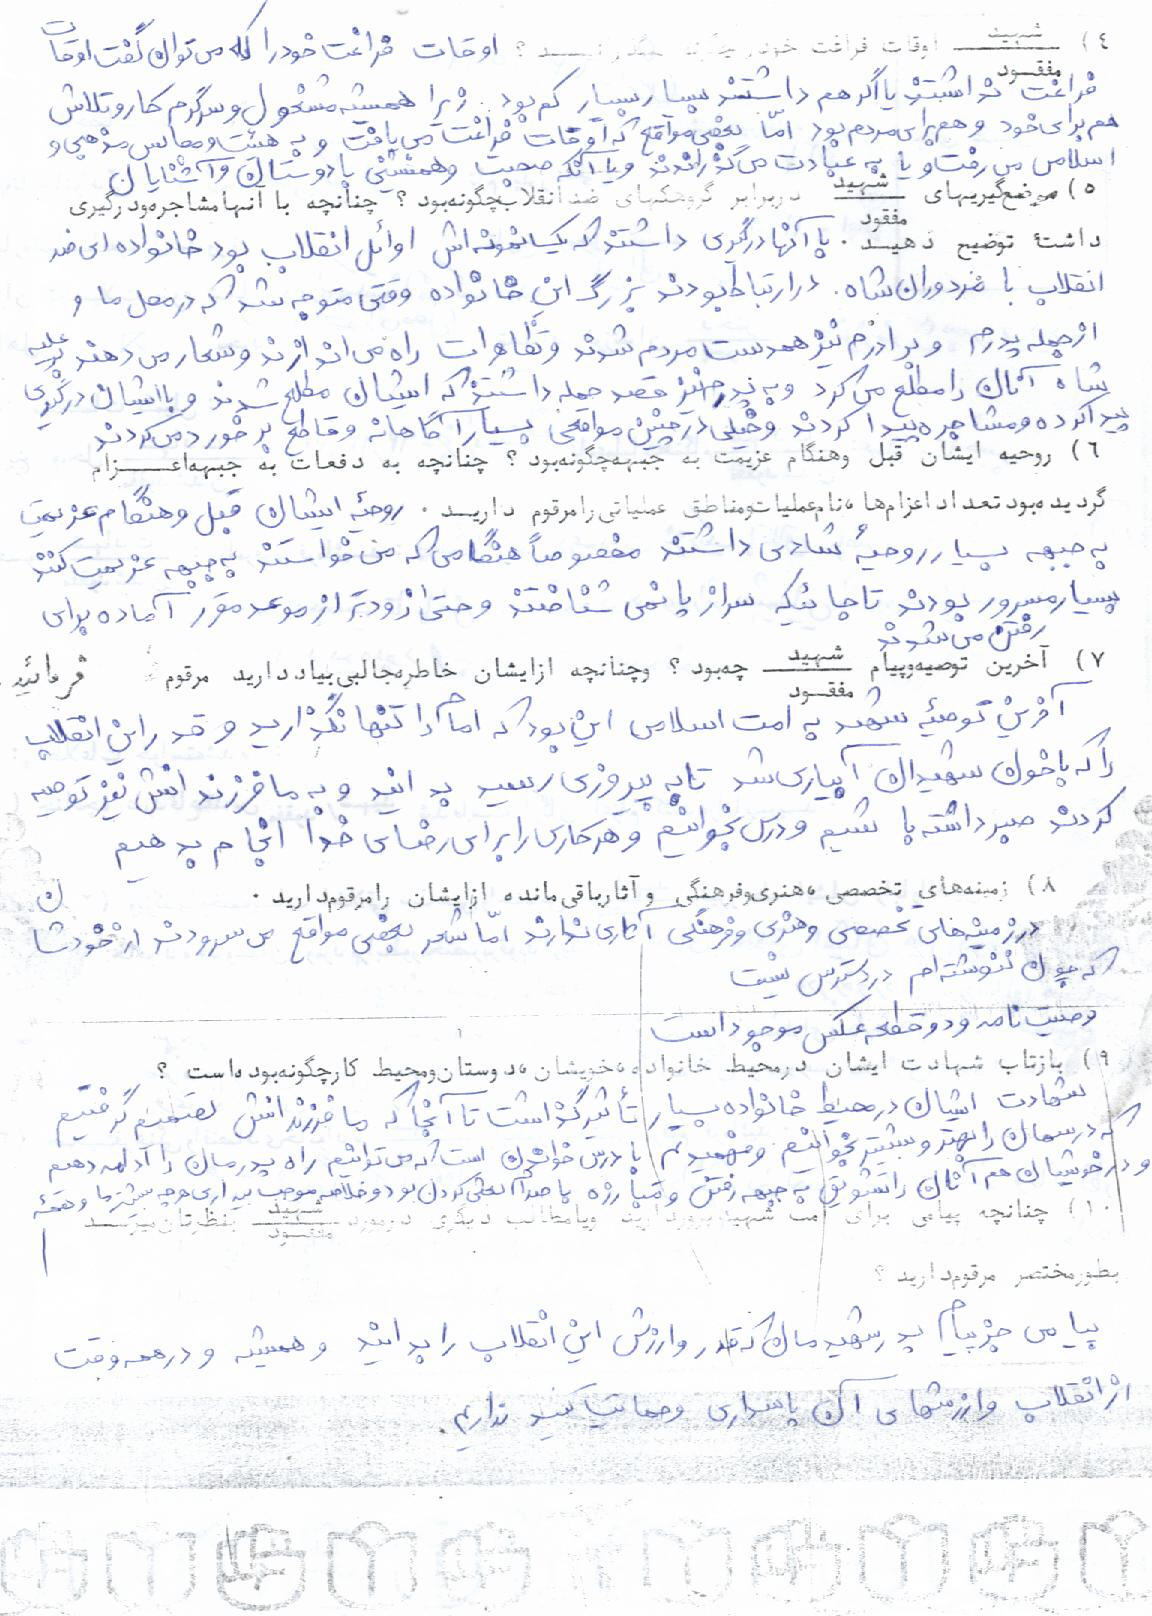 ٤) شهید / مفقود اوقات فراغت خود را چگونه میگذرانید ؟ اوقات فراغت خود را که می توان گفت اوقات
فراغت نداشتند یا اگر هم داشتند بسیار بسیار کم بود . زیرا همیشه مشغول و سرگرم کار و تلاش
هم برای خود و هم برای مردم بود امّا بعضی مواقع که اوقات فراغت می یافت و به هیئت و مجالس مذهبی و
اسلامی می رفت و یا به عبادت می گذراندند و یا آنکه صحبت و همنشینی با دوستان و آشنایان
٥) موضعگیریهای شهید / مفقود در برابر گروهکهای ضد انقلاب چگونه بود ؟ چنانچه با آنها مشاجره و درگیری
داشتهٔ توضیح دهید . با آنها درگیری داشتند که یک نمونه اش اوائل انقلاب بود خانواده ای ضد
انقلاب با مزدوران شاه . در ارتباط بودند بزرگ این خانواده وقتی متوجه شد که در محل ما و
از جمله پدرم و برادرم نیز همدست مردم شدند و تظاهرات راه می اندازند و شعار می دهند بر علیه
شاه آنان را مطلع می کرد و به پدرم نیز قصد حمله داشتند که ایشان مطلع شدند و با ایشان درگیری
پیدا کرده و مشاجره پیدا کردند و خیلی در چنین مواقعی بسیار آگاهانه و قاطع برخورد می کردند
٦) روحیه ایشان قبل وهنگام عزیمت به جبهه چگونه بود ؟ چنانچه به دفعات به جبهه اعزام
گردیده بود تعداد اعزام ها ، نام عملیات و مناطق عملیاتی را مرقوم دارید . روحیهٔ ایشان قبل و هنگام عزیمت
به جبهه بسیار روحیهٔ شادی داشتند مخصوصاً هنگامی که می خواستند به جبهه عزیمت کنند
بسیار مسرور بودند تا جائیکه سر از پا نمی شناختند و حتی از زودتر از موعد مقرر آماده برای
رفتن می شدند
٧) آخرین توصیه و پیام شهید / مفقود چه بود ؟ و چنانچه از ایشان خاطره جالبی بیاد دارید مرقوم فرمائید
آخرین توصیهٔ شهید به امت اسلامی این بود که امام را تنها نگذارید و قدر این انقلاب
را که با خون شهیدان آبیاری شد تا به پیروزی رسید بدانید و به ما فرزندانش نیز توصیه
کردند صبر داشته باشیم و درس بخوانیم و هر کاری را برای رضای خدا انجام بدهیم
٨) زمینه های تخصصی ، هنری و فرهنگی و آثار باقی مانده از ایشان را مرقوم دارید .
در زمینه های تخصصی و هنری و فرهنگی آثاری ندارند امّا شعر بعضی مواقع می سرودند از خودشان
که چون ننوشته ام در دسترس نیست
وصیت نامه و دو قطعه عکس موجود است
٩) بازتاب شهادت ایشان در محیط خانواده ، خویشان ، دوستان و محیط کار چگونه بوده است ؟
شهادت ایشان در محیط خانواده بسیار تأثیر گذاشت تا آنجا که ما فرزندانش تصمیم گرفتیم
که درسمان را بهتر و بیشتر بخوانیم و فهمیدیم با درس خواندن است که می توانیم راه پدرمان را ادامه دهیم
و در خویشان هم آنان را تشویق به جبهه رفتن و مبارزه با صدام بعثی کردن بود و خلاصه موجب بیداری هر چه بیشتر ما و همهٔ
١٠) چنانچه پیامی برای امت شهید پرور دارید و یا مطالب دیگری در مورد شهید / مفقود بنظرتان میرسد
بطور مختصر مرقوم دارید ؟
پیامی جز پیام پدر شهیدمان که قدر و ارزش این انقلاب را بدانید و همیشه و در همه وقت
از انقلاب و ارزشهای آن پاسداری و حمایت کنید نداریم .